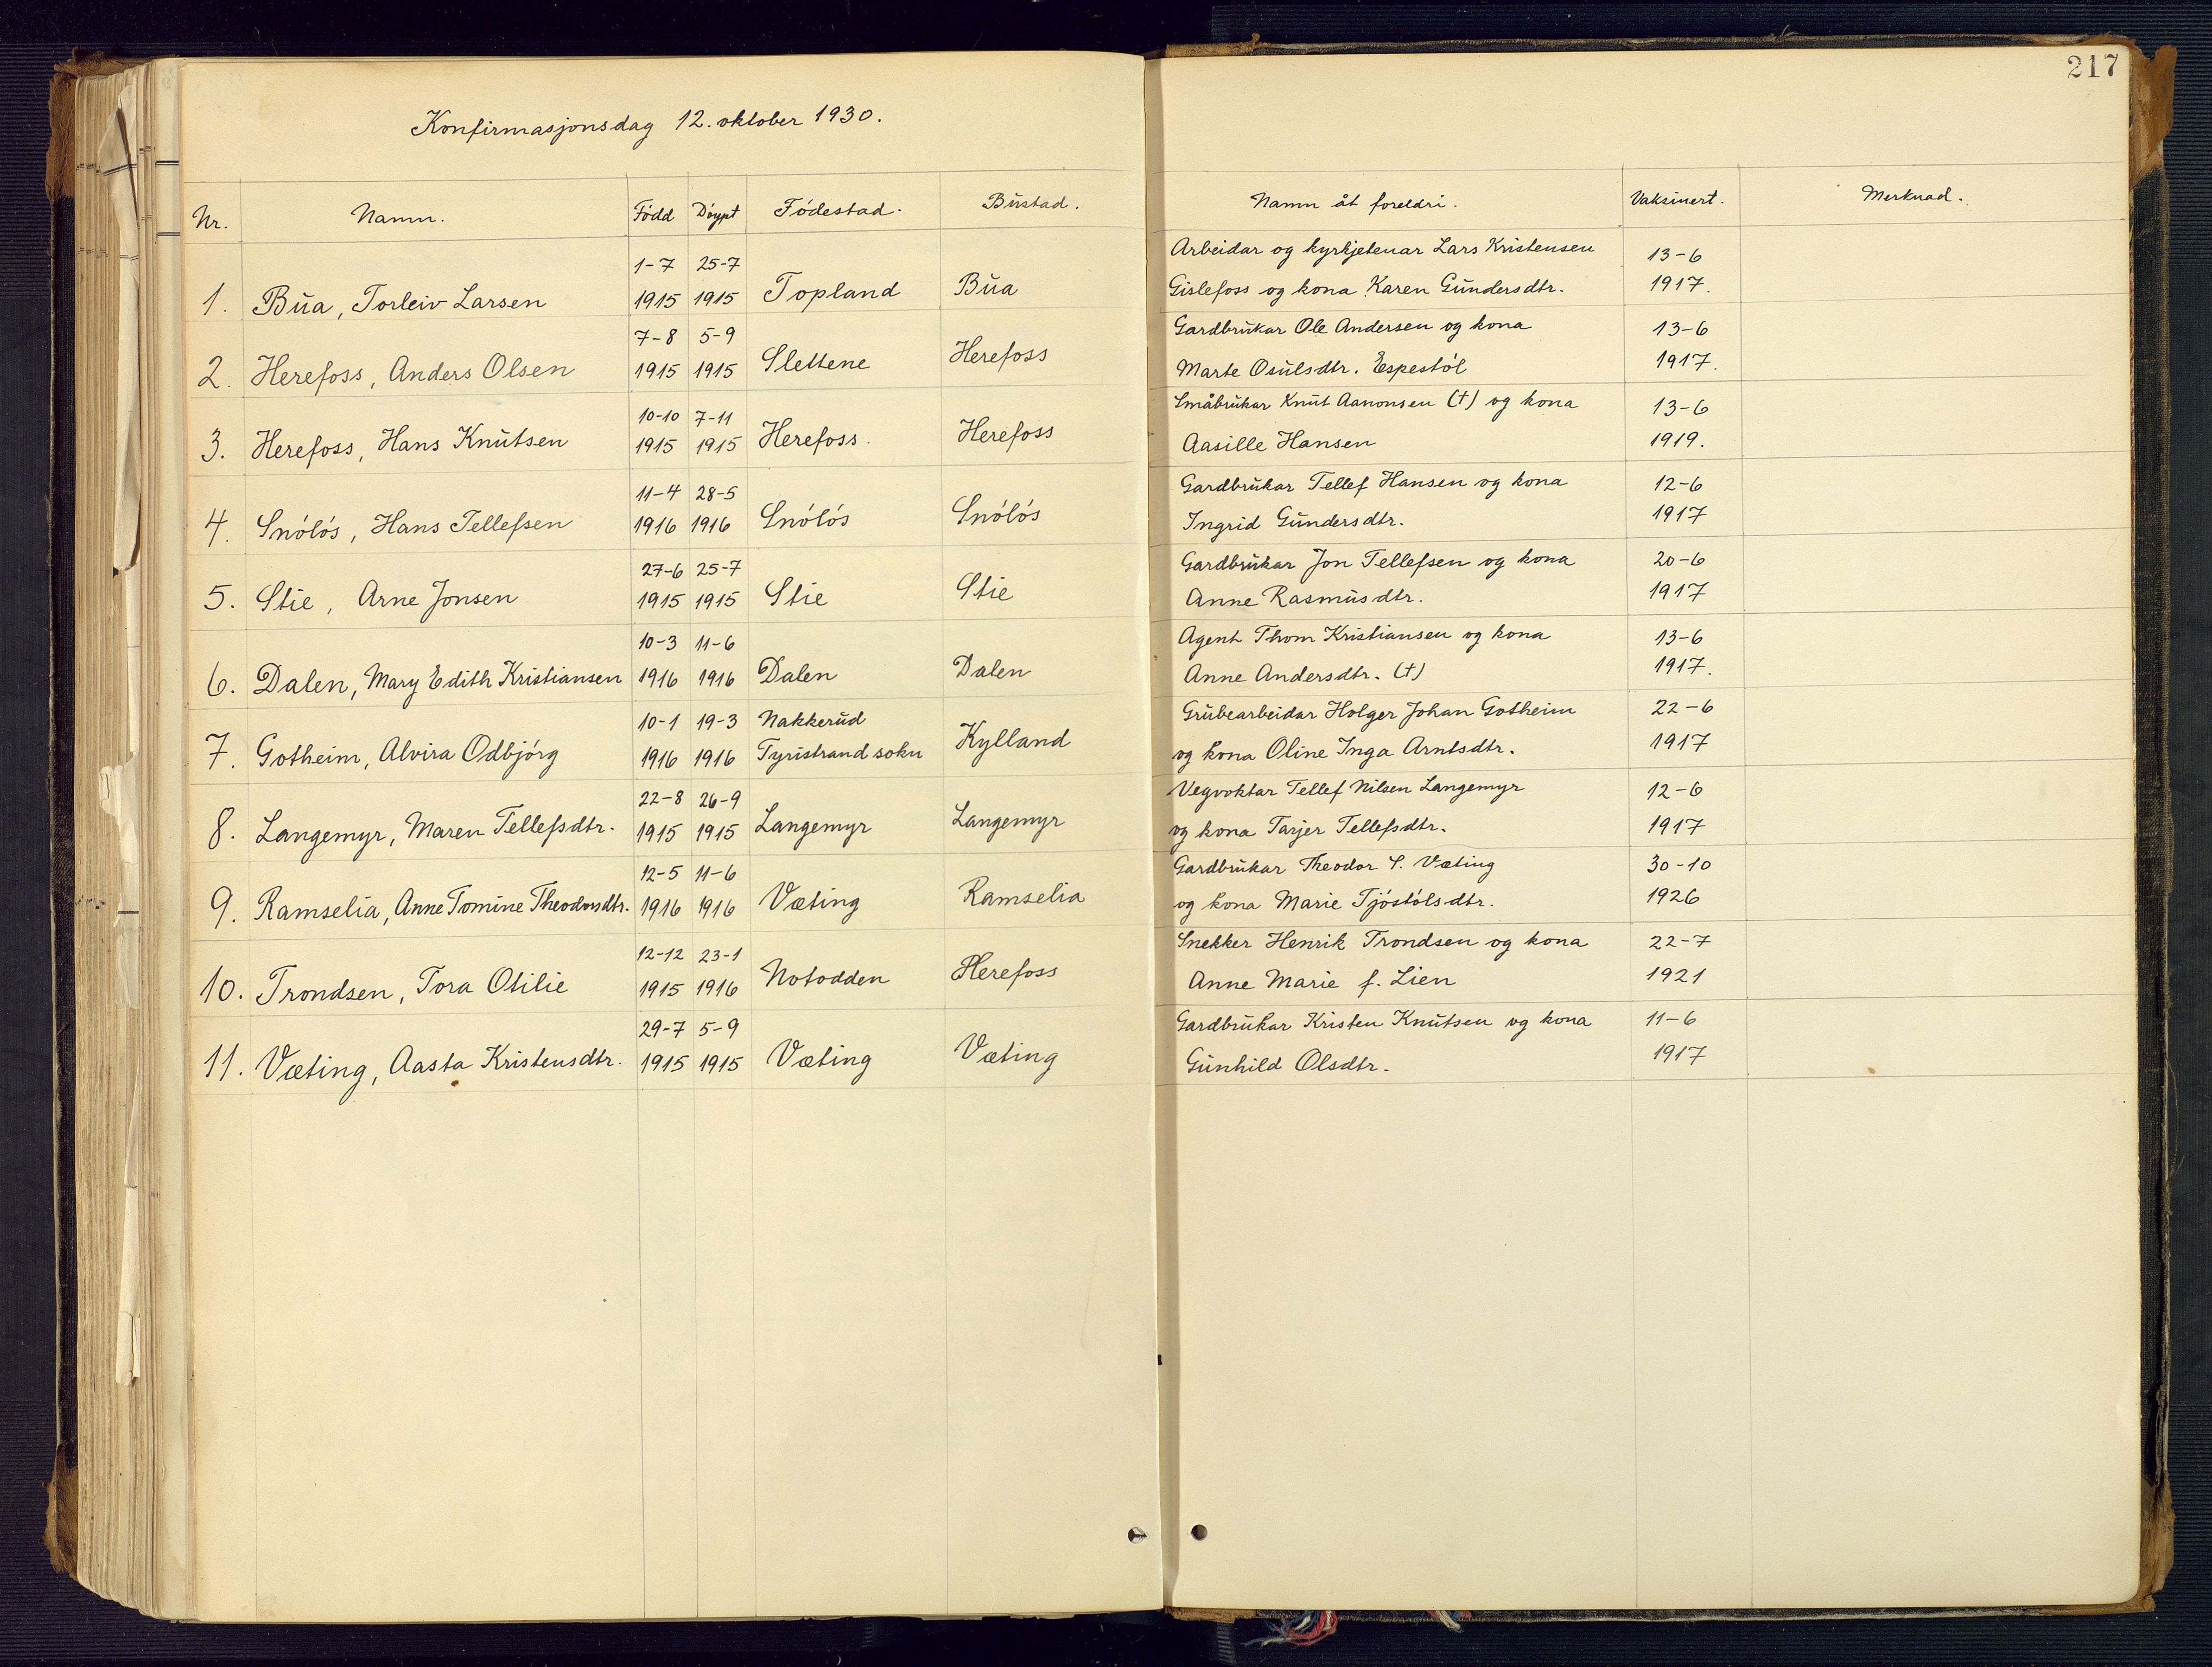 217
Konfirmasjonsdag 12. oktober 1930.
Nr. Namn. Fødd Døypt Fødestad. Bustad. Namn åt foreldri. Vaksinert. Merknad.
1-7 25-7 Arbeidar og kyrkjetenar Lars Kristensen 13-6
1. Bua, Torleiv Larsen 1915 1915 Topland Bua Gislefoss og kona Karen Gundersdtr. 1917.
7-8 5-9 Gardbrukar Ole Andersen og kona 13-6
2. Herefoss, Anders Olsen 1915 1915 Slettene Herefoss Marte Osulsdtr. Espestøl 1917.
10-10 7-11 Småbrukar Knut Aanonsen (†) og kona 13-6
3. Herefoss, Hans Knutsen 1915 1915 Herefoss. Herefoss Aasille Hansen 1919.
11-4 28-5 Gardbrukar Tellef Hansen og kona 12-6
4. Snøløs, Hans Tellefsen 1916 1916 Snøløs Snøløs Ingrid Gundersdtr. 1917
27-6 25-7 Gardbrukar Jon Tellefsen og kona 20-6
5. Stie, Arne Jonsen 1915 1915 Stie Stie Anne Rasmusdtr. 1917
10-3 11-6 Agent Thom Kristiansen og kona 13-6
6. Dalen, Mary Edith Kristiansen 1916 1916 Dalen Dalen Anne Andersdtr. (†) 1917.
10-1 19-3 Nakkerud Grubearbeidar Holger Johan Gotheim 22-6
7. Gotheim, Alvira Odbjørg 1916 1916 Tyristrand sokn Kylland og kona Oline Inga Arntsdtr. 1917
22-8 26-9 Vegvoktar Tellef Nilsen Langemyr 12-6
8. Langemyr, Maren Tellefsdtr. 1915 1915 Langemyr Langemyr og kona Tarjer Tellefsdtr. 1917
12-5 11-6 Gardbrukar Theodor S. Væting 30-10
9. Ramselia, Anne Tomine Theodorsdtr. 1916 1916 Væting Ramselia og kona Marie Tjøstølsdtr. 1926
12-12 23-1 Snekker Henrik Trondsen og kona 22-7
10. Trondsen, Tora Otilie 1915 1916 Notodden Herefoss Anne Marie f. Lien 1921
29-7 5-9 Gardbrukar Kristen Knutsen og kona 11-6
11. Væting, Aasta Kristensdtr. 1915 1915 Væting Væting Gunhild Olsdtr. 1917